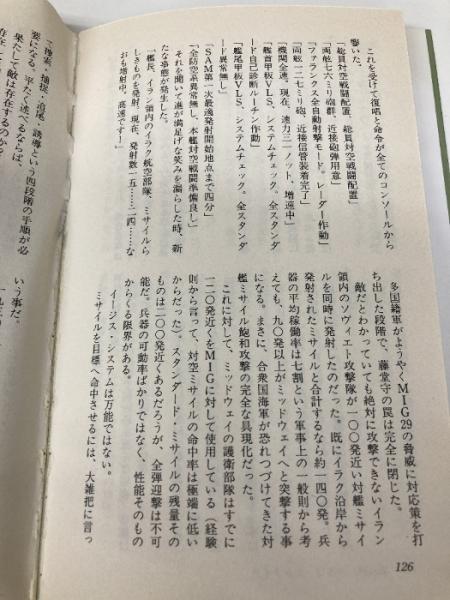 これを受けて復唱と命令が全てのコンソールから
響いた。
「総員対空戦闘配置、総員対空戦闘配置」
「両舷七六ミリ砲群、近接砲弾用意」
「ファランクス全自動射撃モード。レーダー作動」
「両舷一二七ミリ砲、近接信管装着完了」
「機関全速、現在、速力三一ノット、増速中」
「艦首甲板VLS、システムチェック。全スタンダ
ード自己診断ルーチン作動」
「艦尾甲板VLS、システムチェック。全スタンダ
ード異常無し」
「SAM第一次最適発射開始地点まで四分」
「全防空系異常無し、本艦対空戦闘準備良し」
それを聞いて進が満足げな笑みを漏らした時、新
たな事態が発生した。
「艦長、イラン領内のイラク航空部隊、ミサイルら
しきものを発射、現在、発射数一五……二四……な
おも増射中、高速です！」
多国籍軍がようやくMIG29の脅威に対応策を打
ち出した段階で、藤堂守の罠は完全に閉じた。
敵だとわかっていても絶対に攻撃できないイラン
領内のソヴィエト攻撃隊が一〇〇発近い対艦ミサイ
ルを同時に発射したのだった。既にイラク沿岸から
発射されたミサイルと合計するなら約一四〇発。兵
器の平均稼働率は七割という軍事上の一般則から考
えても、九〇発以上がミッドウェイへと突撃する事
になる。まさに、合衆国海軍が恐れつづけてきた対
艦ミサイル飽和攻撃の完全な具現化だった。
これに対して、ミッドウェイの護衛部隊はすでに
一二〇発近くをMIGに対して使用している（経験
則から言って、対空ミサイルの命中率は極端に低い
からだった）。スタンダード・ミサイルの残量その
ものは二〇〇発近くあるだろうが、全弾迎撃は不可
能だ。兵器の可動率ばかりではなく、性能そのもの
からくる限界がある。
イージス・システムは万能ではない。
ミサイルを目標へ命中させるには、大雑把に言っ
126
「捜索、捕捉、追尾、誘導という四段階の手順が必
要になる。平たく述べるならば、
果たして敵は存在するのか？
いう事だ。